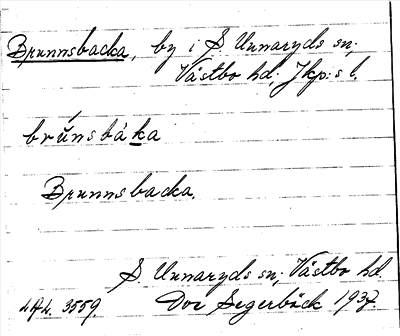 Brunnsbacka, by i S Unnaryds sn;
Västbo hd. Jkp:s l.
brúnsbàka
Brunnsbacka.
S Unnaryds sn; Västbo hd.
3559. Segerbäck 1937.